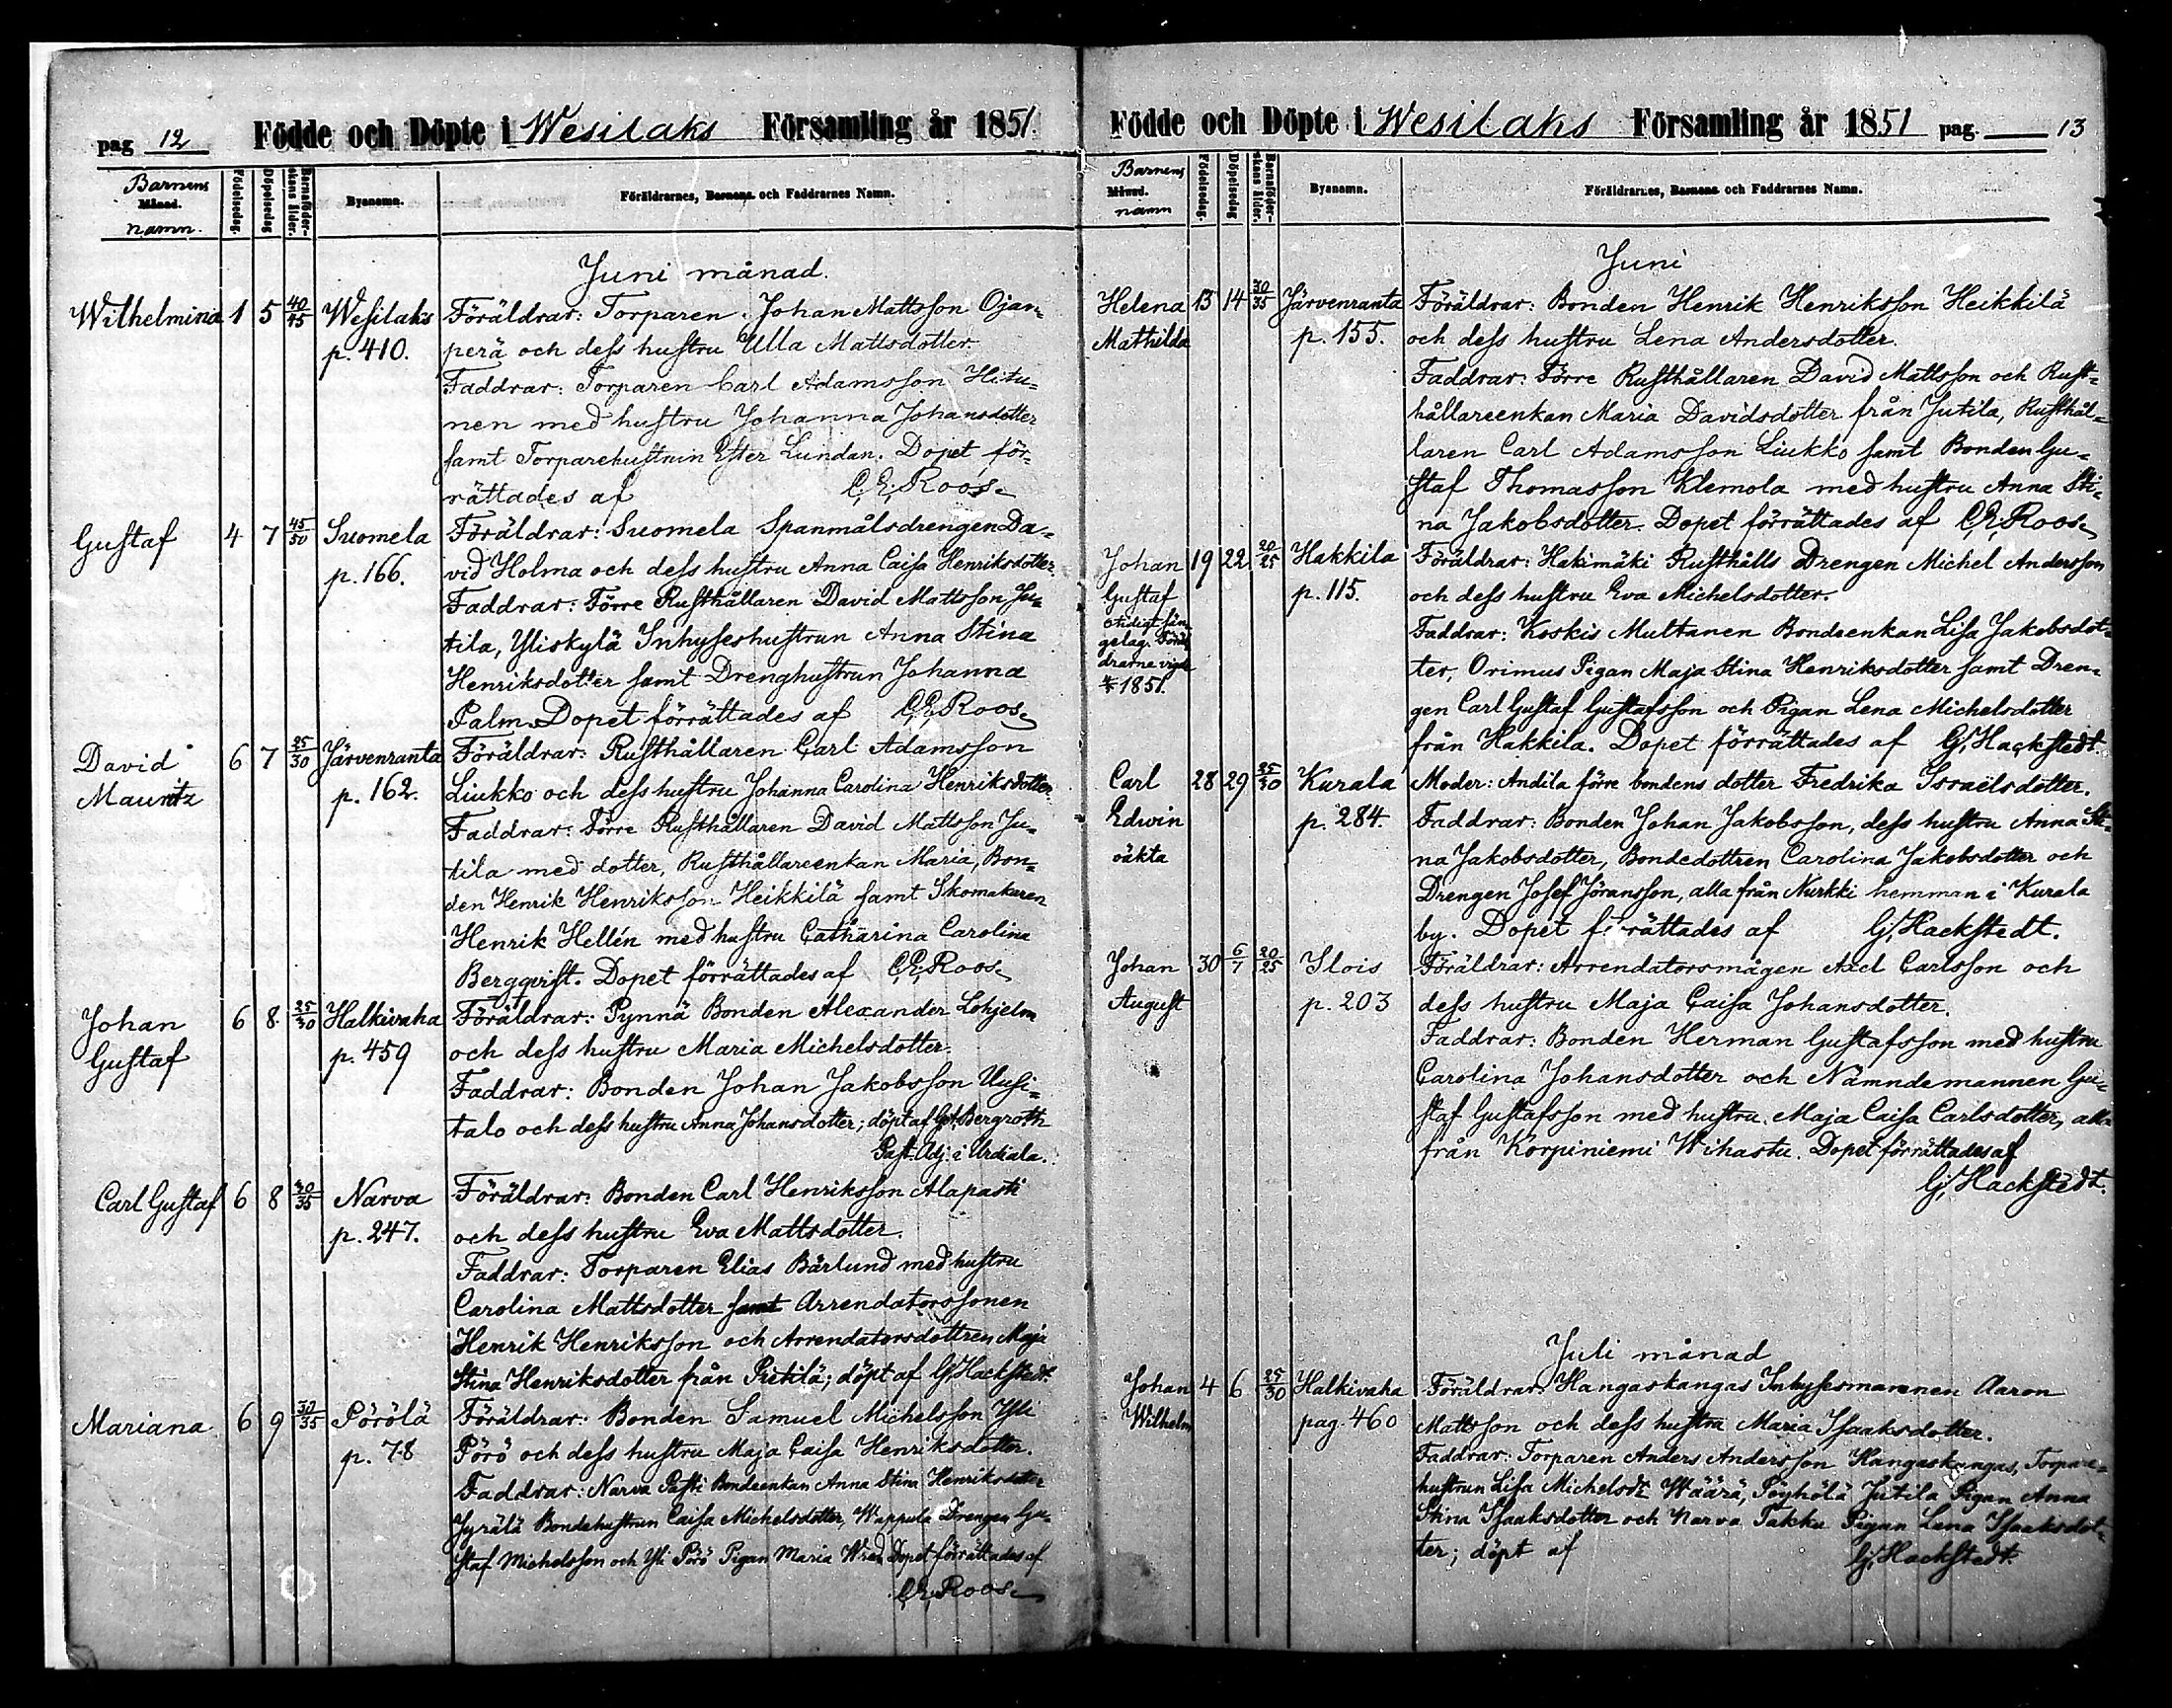 pag 12 Födde och Döpte i Wesilaks Församling år 1851.
Barnens
Månad.
namn.
Födelsedag.
Döpelsedag
Barnaföderskans ålder.
Bysnamn.
Föräldrarnes, Barnens och Faddrarnes Namn.
Juni månad.
Wilhelmina 1 5 40/45 Wesilaks Föräldrar: Torparen Johan Mattsson Ojan-
p. 410. perä och dess hustru Ulla Mattsdotter
Faddrar: Torparen Carl Adamsson Hitu-
nen med hustru Johanna Johansdotter
samt Torparehustrun Ester Lundan. Dopet för-
rättades af C. E. Roos.
Gustaf 4 7 45/50 Suomela Föräldrar: Suomela Spanmålsdrengen Da-
p. 166. vid Holma och dess hustru Anna Caisa Henriksdotter.
Faddrar: Förre Rusthållaren David Mattsson Ju-
tila, Yliskylä Inhyseshustrun Anna Stina
Henriksdotter samt Drenghustrun Johanna
Palm. Dopet förrättades af C. E. Roos.
David 6 7 25/30 Järvenranta Föräldrar: Rusthållaren Carl Adamsson
Mauritz p. 162. Liukko och dess hustru Johanna Carolina Henriksdotter.
Faddrar: Förre Rusthållaren David Mattsson Ju-
tila med dotter, Rusthållareenkan Maria, Bon-
den Henrik Henriksson Heikkilä samt Skomakaren
Henrik Hellén med hustru Catharina Carolina
Bergqvist. Dopet förrättades af C. E. Roos.
Johan 6 8 25/30 Halkivaha Föräldrar: Pynnä Bonden Alexander Lohjelm
Gustaf p. 459 och dess hustru Maria Michelsdotter.
Faddrar: Bonden Johan Jakobsson Uusi-
talo och dess hustru Anna Johansdotter; döpt af Bergroth
Past. Adj. i Urdiala.
Carl Gustaf 6 8 30/35 Narva Föräldrar: Bonden Carl Henriksson Alapasti
p. 247. och dess hustru Eva Mattsdotter.
Faddrar: Torparen Elias Bärlund med hustru
Carolina Mattsdotter samt Arrendatorssonen
Henrik Henriksson och Arrendatorsdottren Maja
Stina Henriksdotter från Pietilä; döpt af G. Hackstedt.
Mariana 6 9 30/35 Pörölä Föräldrar: Bonden Samuel Michelsson Yli
p. 78 Pörö och dess hustru Maja Caisa Henriksdotter.
Faddrar: Narva Pasti Bondeenkan Anna Stina Henriksdotter
Jyrälä Bondehustrun Caisa Michelsdotter, Weppula Drengen Gu-
staf Michelsson och Yli Pörö Pigan Maria Wred. Dopet förrättades af
C. E. Roos.
Födde och Döpte i Wesilaks Församling år 1851 pag. 13
Barnens
Månad.
namn
Födelsedag
Döpelsedag
Barnaföderskans ålder.
Bysnamn.
Föräldrarnes, Barnens och Faddrarnes Namn.
Juni
Helena 13 14 30/35 Järvenranta Föräldrar: Bonden Henrik Henriksson Heikkilä
Mathilda p. 155. och dess hustru Lena Andersdotter.
Faddrar: Förre Rusthållaren David Mattsson och Rust-
hållareenkan Maria Davidsdotter från Jutila, Rusthål-
laren Carl Adamsson Liukko samt Bonden Gu-
staf Thomasson Klemola med hustru Anna Sti-
na Jakobsdotter. Dopet förrättades af C. E. Roos.
Johan 19 22 20/25 Hakkila Föräldrar: Hakimäki Rusthålls Drengen Michel Andersson
Gustaf p. 115. och dess hustru Eva Michelsdotter.
otidigt sän- Faddrar: Koskis Multanen Bondeenkan Lisa Jakobsdot-
gelag. Föräl
drarne vigde ter, Orimus Pigan Maja Stina Henriksdotter samt Dren-
1851. gen Carl Gustaf Gustafsson och Pigan Lena Michelsdotter
från Hakkila. Dopet förrättades af G. Hackstedt.
Carl 28 29 25/30 Kurala Moder: Andila förre bondens dotter Fredrika Israëlsdotter.
Edwin p. 284. Faddrar: Bonden Johan Jakobsson, dess hustru Anna Sti-
oäkta na Jakobsdotter, Bondedottren Carolina Jakobsdotter och
Drengen Josef Jöransson, alla från Nurkki hemman i Kurala
by. Dopet förrättades af G. Hackstedt.
Johan 30 6/7 20/25 Ilois Föräldrar: Arrendatorsmågen Axel Carlsson och
August p. 203 dess hustru Maja Caisa Johansdotter.
Faddrar: Bonden Herman Gustafsson med hustru
Carolina Johansdotter och Nämndemannen Gu-
staf Gustafsson med hustru Maja Caisa Carlsdotter, alla
från Korpiniemi Wihastu. Dopet förrättades af
G. Hackstedt.
Juli månad
Johan 4 6 25/30 Halkivaha Föräldrar: Hangaskangas Inhysesmannen Aaron
Wilhelm pag. 460 Mattsson och dess hustru Maria Isaaksdotter.
Faddrar: Torparen Anders Andersson Hangaskangas, Torpare-
hustrun Lisa Michelsdr Wäärä, Pöyhölä Jutila Pigan Anna
Stina Isaaksdotter och Narva Takku Pigan Lena Isaaksdot-
ter; döpt af G. Hackstedt.